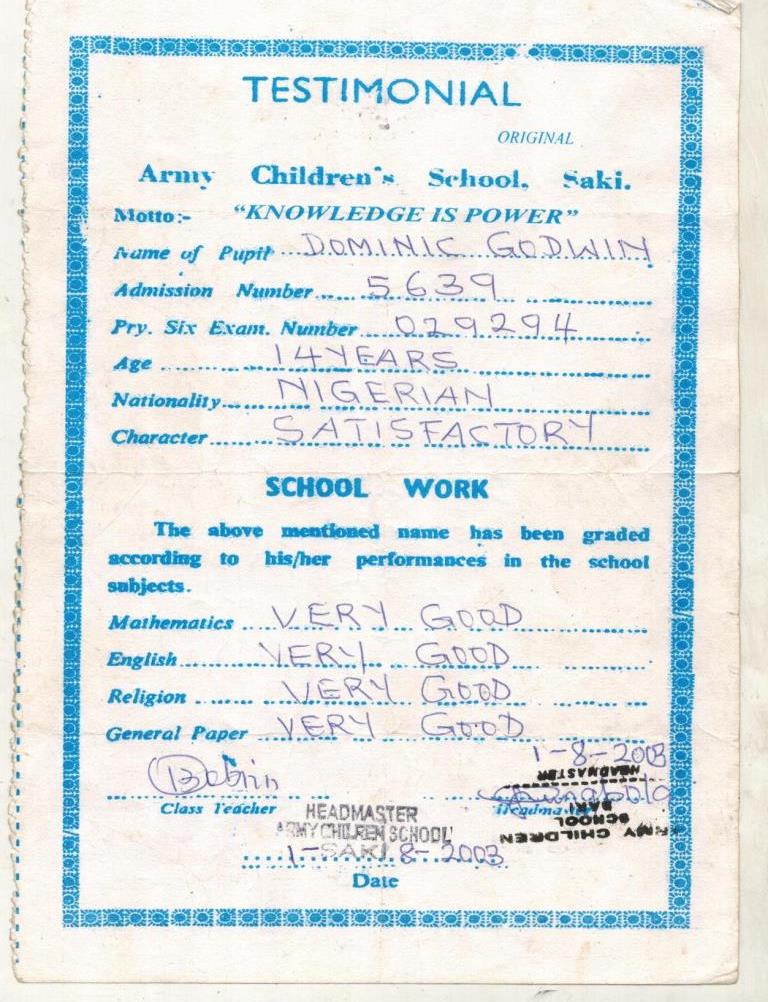 TESTIMONIAL
ORIGINAL
Army Children's School, Saki.
Motto:- "KNOWLEDGE IS POWER"
Name of Pupil DOMINIC GODWIN
Admission Number 5639
Pry. Six Exam. Number 029294
Age 14 YEARS
Nationality NIGERIAN
Character SATISFACTORY
SCHOOL WORK
The above mentioned name has been graded
according to his/her performances in the school
subjects.
Mathematics VERY GOOD
English VERY GOOD
Religion VERY GOOD
General Paper VERY GOOD
1-8-2003
HEADMASTER
Class Teacher
SAKI
SCHOOL
ARMY CHILDREN
HEADMASTER
ARMY CHILDREN SCHOOL
SAKI
1-8-2003
Date